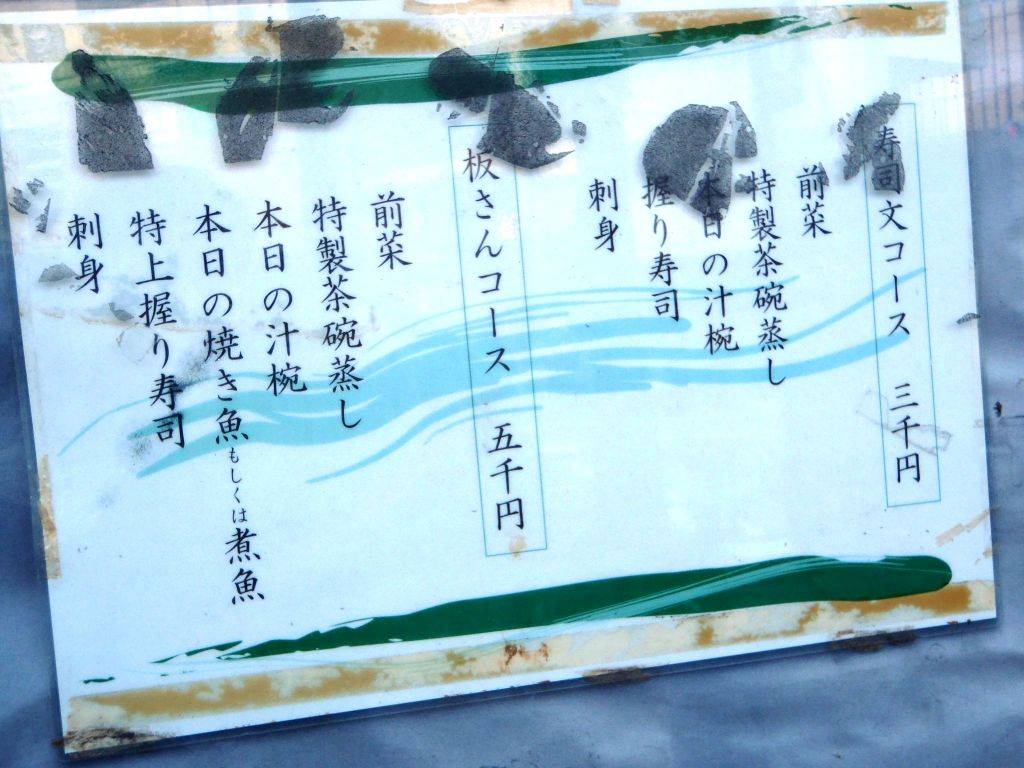 寿司文コース 三千円
前菜
特製茶碗蒸し
本日の汁椀
握り寿司
刺身
板さんコース 五千円
前菜
特製茶碗蒸し
本日の汁椀
本日の焼き魚もしくは煮魚
特上握り寿司
刺身